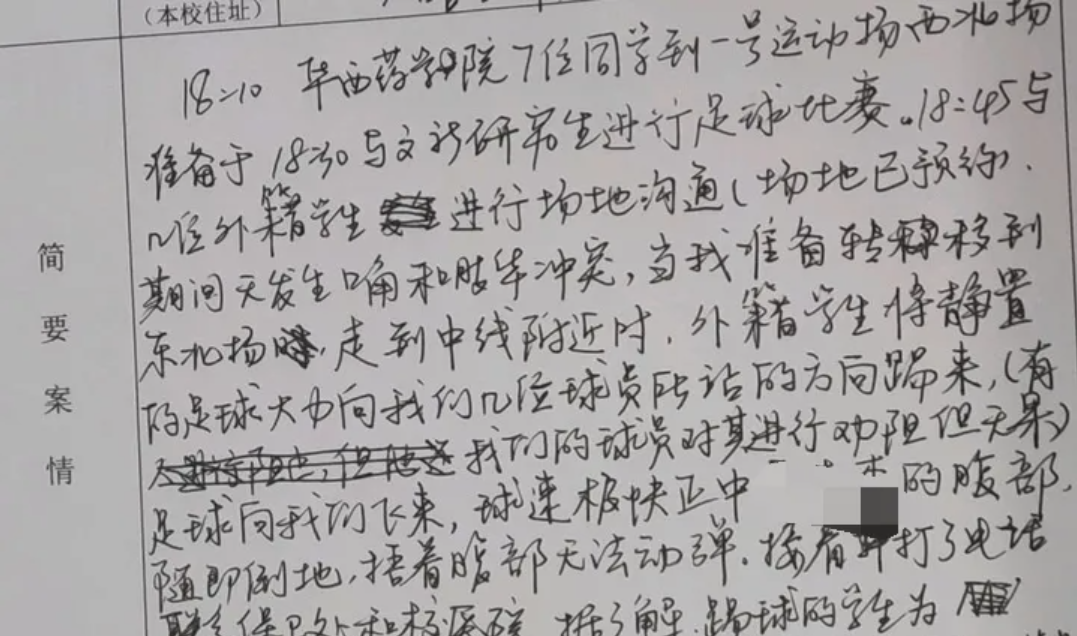 （本校住址）
简要案情
18:10 华西药学院7位同学到一号运动场西北场
准备于18:30与文新研究生进行足球比赛。18:45与
几位外籍学生进行场地沟通（场地已预约）.
期间无发生口角和肢体冲突，当我准备转移到
东北场，走到中线附近时，外籍学生将静置
的足球大力向我们几位球员所站的方向踢来，（有
我们的球员对其进行劝阻但无果）
足球向我们飞来，球速极快正中 的腹部，
随即倒地，捂着腹部无法动弹。接着打了电话
联系保卫处和校医院，据了解，踢球的学生为